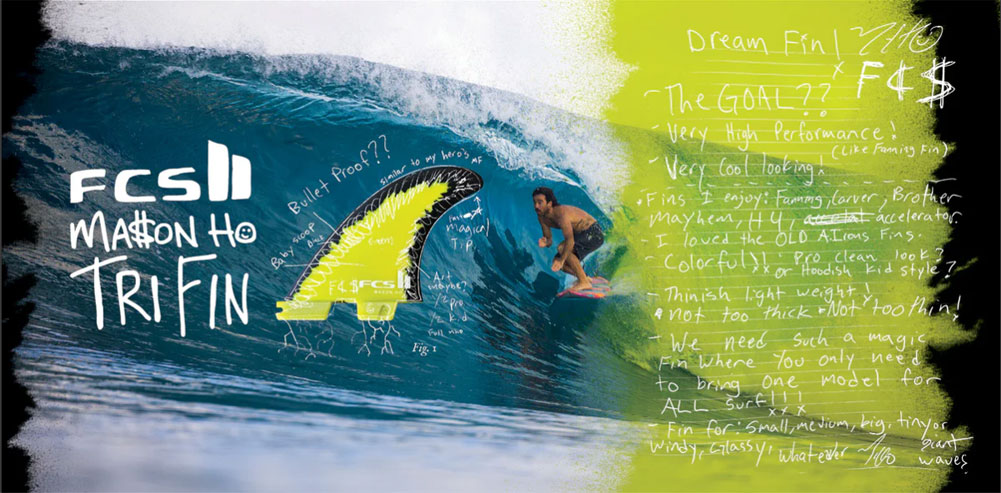 FCS II
MA$ON HO
TRI FIN
Bullet Proof??
similar to my hero's AF
Baby scoop
magical
T.P.
FCS II
Art
maybe?
1/2 Pro
1/2 Kid
Full
Fig. 1
Dream Fin!
x F¢$
- The GOAL??
- Very High Performance!
(Like Faming Fin)
- Very cool looking!
• Fins I enjoy: Faming, carver, Brother
Mayhem, H4, accelerator
- I loved the OLD AIrons Fins.
- Colorful)! Pro clean look?
xx or Hoodish Kid style?
- Thinish light weight!
• not too thick • Not too thin!
- We need such a magic
Fin where You only need
to bring one model for
ALL surf!!!
xxx
- Fin for: small, medium, big, tiny or
windy, Glassy, whatever giant
waves